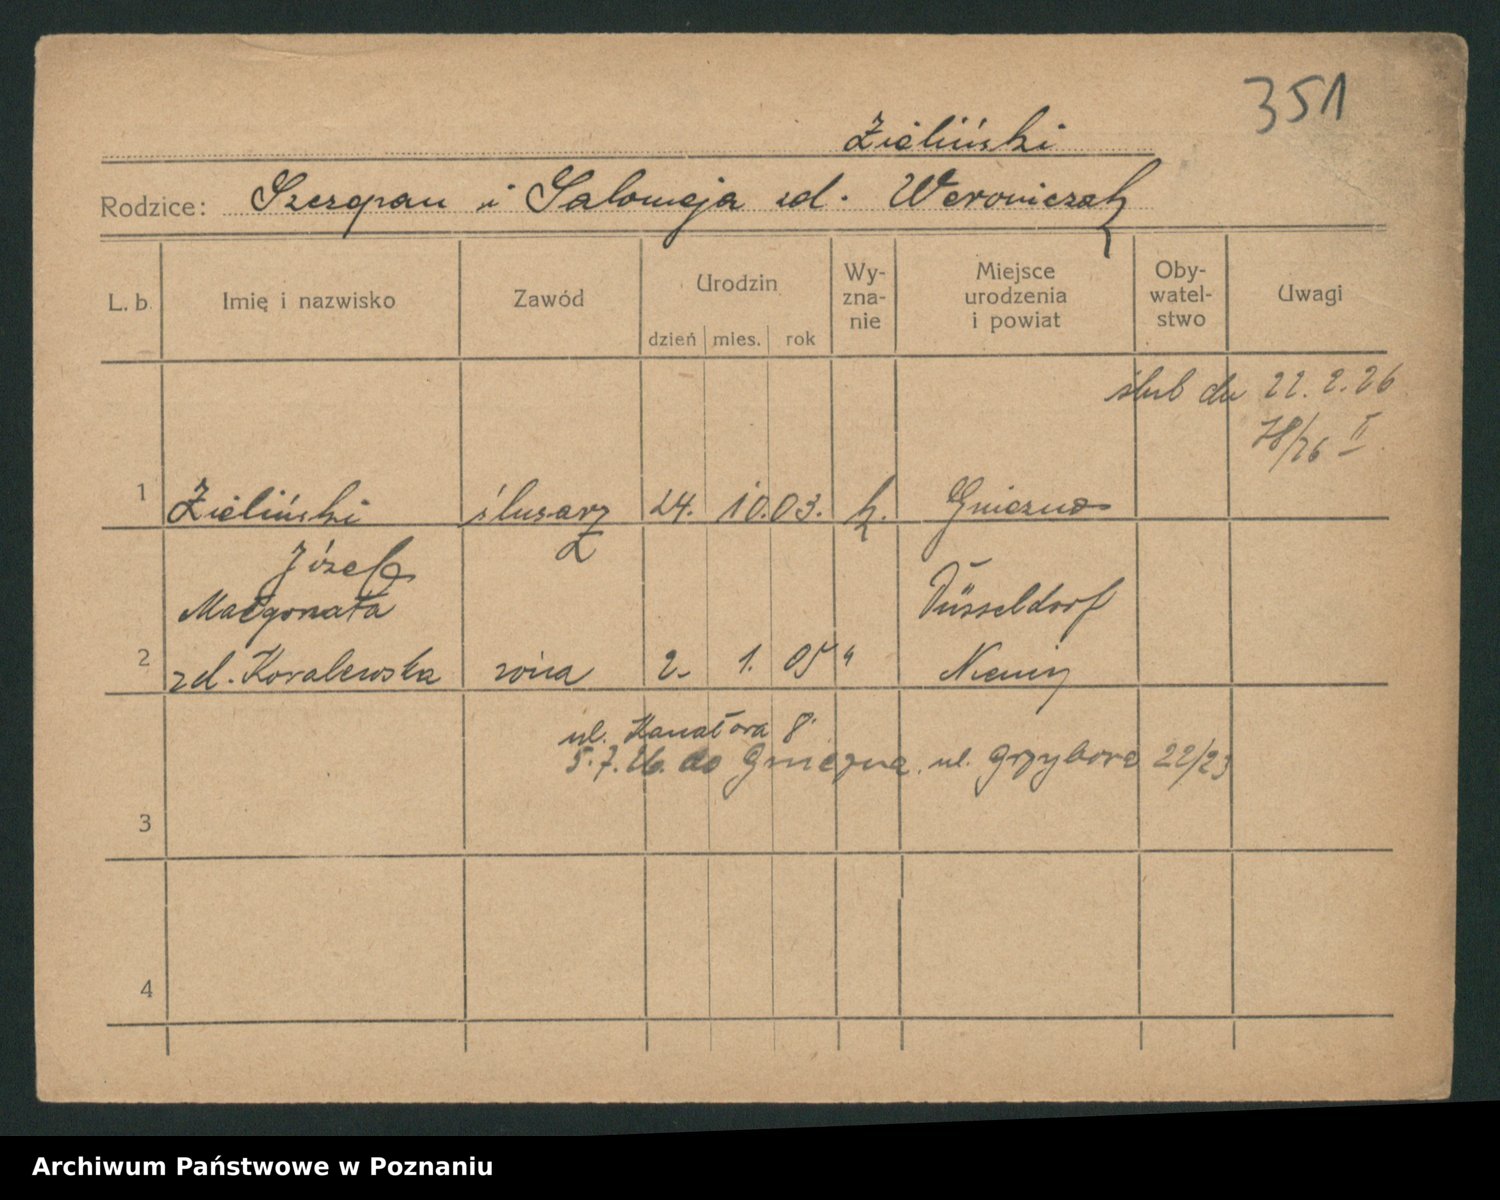 351
Zieliński
Rodzice: Szczepan i Salomeja zd. Weroniczak
L. b. Imię i nazwisko Zawód Urodzin dzień mies. rok Wyznanie Miejsce urodzenia i powiat Obywatelstwo Uwagi
ślub dn 22. 2. 26
78/26 II
1 Zieliński ślusarz 24. 10. 03. k. Gniezno
Józef
Małgorzata Düsseldorf
2 zd. Kowalewska żona 2. 1. 05 " Niemcy
ul. Kanałowa 8
5. 7. 26. do Gniezna, ul. Grzybowo 22/23
3
4
Archiwum Państwowe w Poznaniu